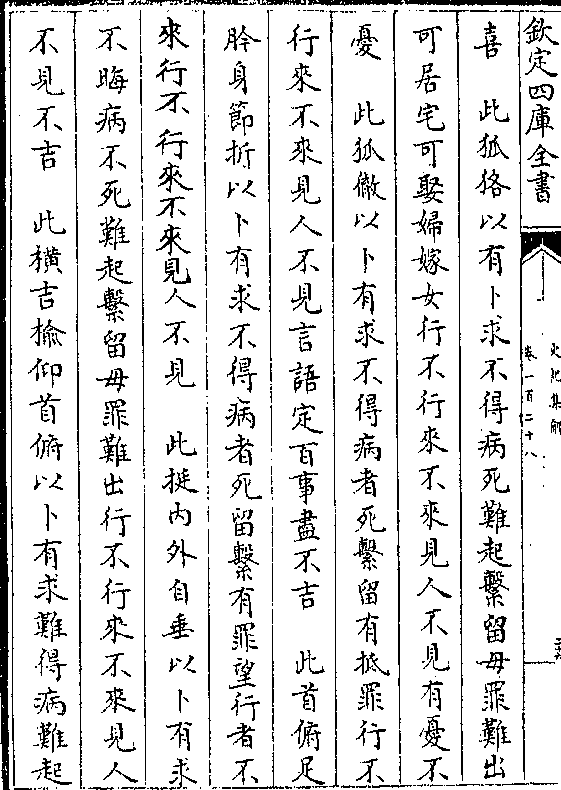 欽定四庫全書
史記集解
卷一百二十八
喜　此狐狢以有卜求不得病死難起繫留毋罪難出
可居宅可娶婦嫁女行不行來不來見人不見有憂不
憂　此狐徹以卜有求不得病者死繫留有抵罪行不
行來不來見人不見言語定百事盡不吉　此首俯足
肣身節折以卜有求不得病者死留繫有罪望行者不
來行不行來不來見人不見　此挺内外自垂以卜有求
不晦病不死難起繫留毋罪難出行不行來不來見人
不見不吉　此橫吉榆仰首俯以卜有求難得病難起